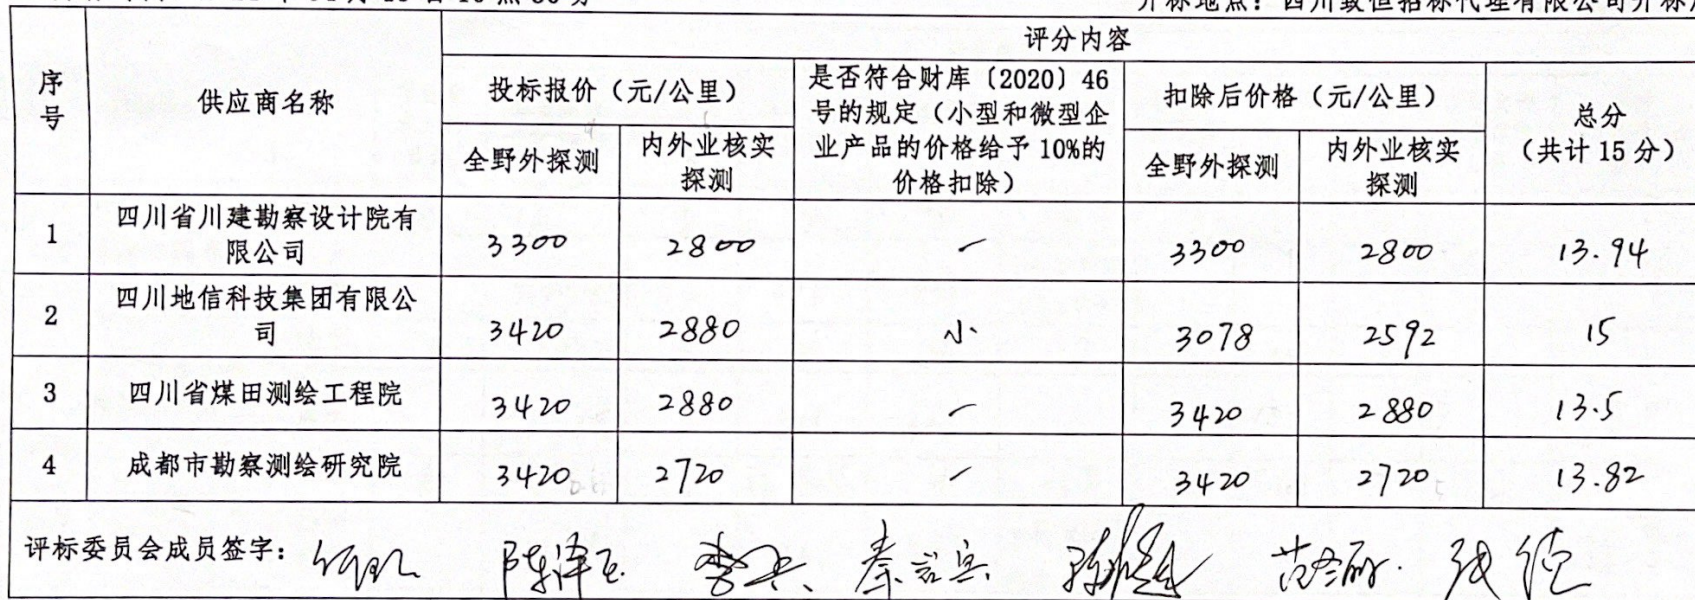 开标地点：四川致恒招标代理有限公司开标
序号
供应商名称
评分内容
投标报价（元/公里）
是否符合财库〔2020〕46
号的规定（小型和微型企
业产品的价格给予 10%的
价格扣除）
扣除后价格（元/公里）
总分
（共计 15 分）
全野外探测
内外业核实
探测
全野外探测
内外业核实
探测
1
四川省川建勘察设计院有
限公司
3300
2800
一
3300
2800
13.94
2
四川地信科技集团有限公
司
3420
2880
小
3078
2592
15
3
四川省煤田测绘工程院
3420
2880
一
3420
2880
13.5
4
成都市勘察测绘研究院
3420
2720
一
3420
2720
13.82
评标委员会成员签字：